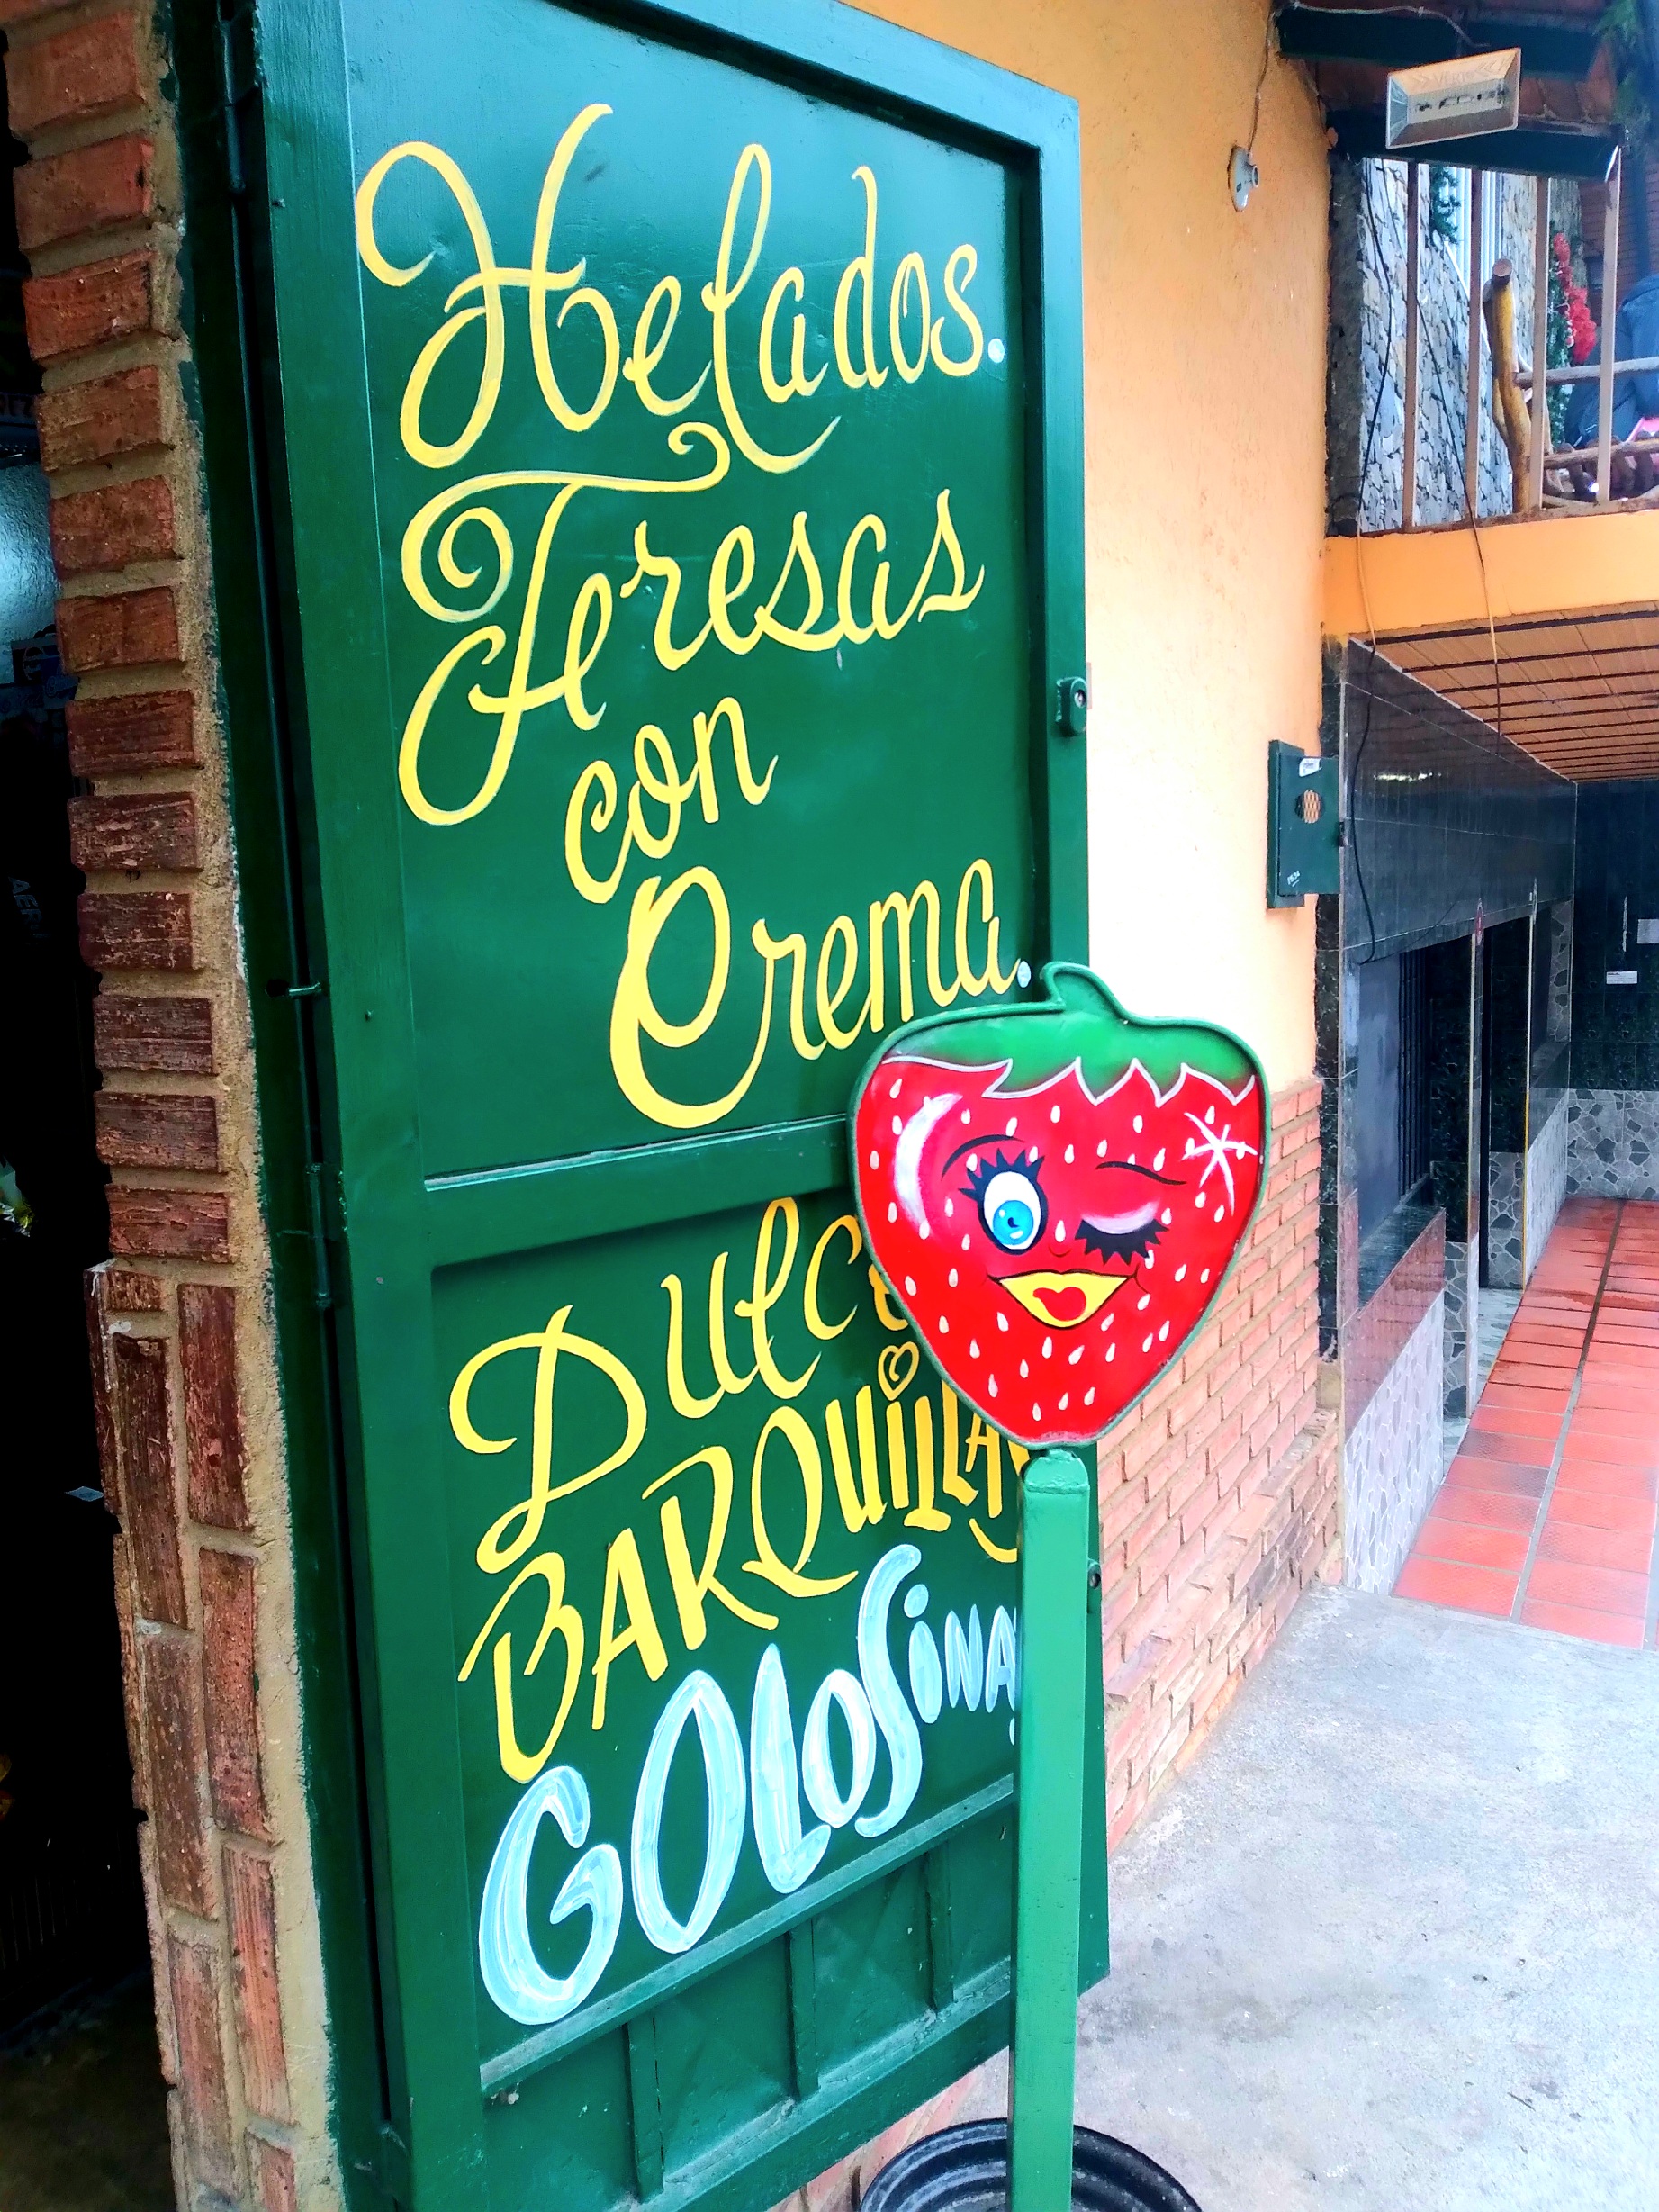 Helados.
Fresas
con
Crema.
Dulce
BARQUiLLAS
GOLOSiNAS